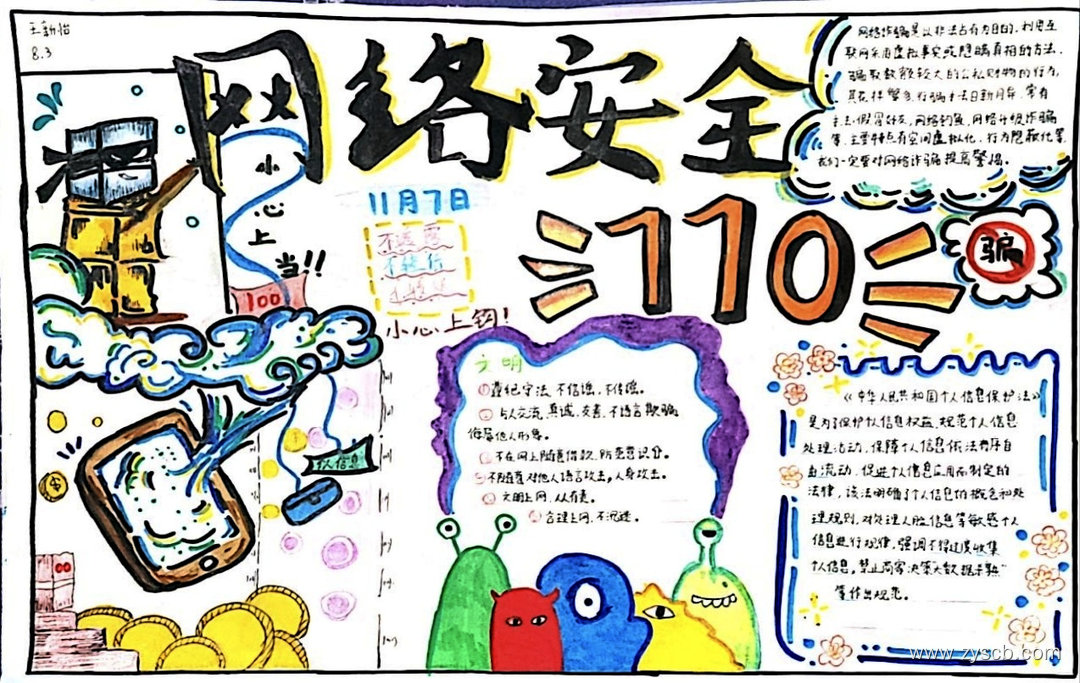 王新怡
8.3
网络安全
网络诈骗是以非法占有为目的，利用互
联网采用虚拟事实或隐瞒真相的方法，
骗取数额较大的公私财物的行为，
其花样繁多，行骗手法日新月异，常有
假冒好友、网络钓鱼、网络升级诈骗
等，主要特点有空间虚拟化，行为隐蔽化等，
我们一定要对网络诈骗提高警惕。
小心上当!!
100
11月7日
不透露
不轻信
不转账
小心上钩!
110
骗
个人信息
文明
遵纪守法，不信谣，不传谣。
与人交流，真诚，友善，不语言欺骗
侮辱他人形象。
不在网上随意借款，防范意识。
不随意对他人语言攻击，人身攻击。
文明上网，从有我。
合理上网，不沉迷。
《中华人民共和国个人信息保护法》
是为了保护个人信息权益，规范个人信息
处理活动，保障个人信息依法有序自
由流动，促进个人信息应用而制定的
法律，该法明确了个人信息的概念和处
理规则，对处理人脸信息等敏感个人
信息进行规律，强调不得过度收集
个人信息，禁止商家决策大数据杀熟"
等作出规范。
www.zyscb.com